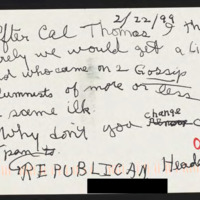 2/22/99
after Cal Thomas, I th
rely we would get a Li
d who came on 2 Gossip
lumnists of more or less
same ilk
Why don't you change
pants
REPUBLICAN Head